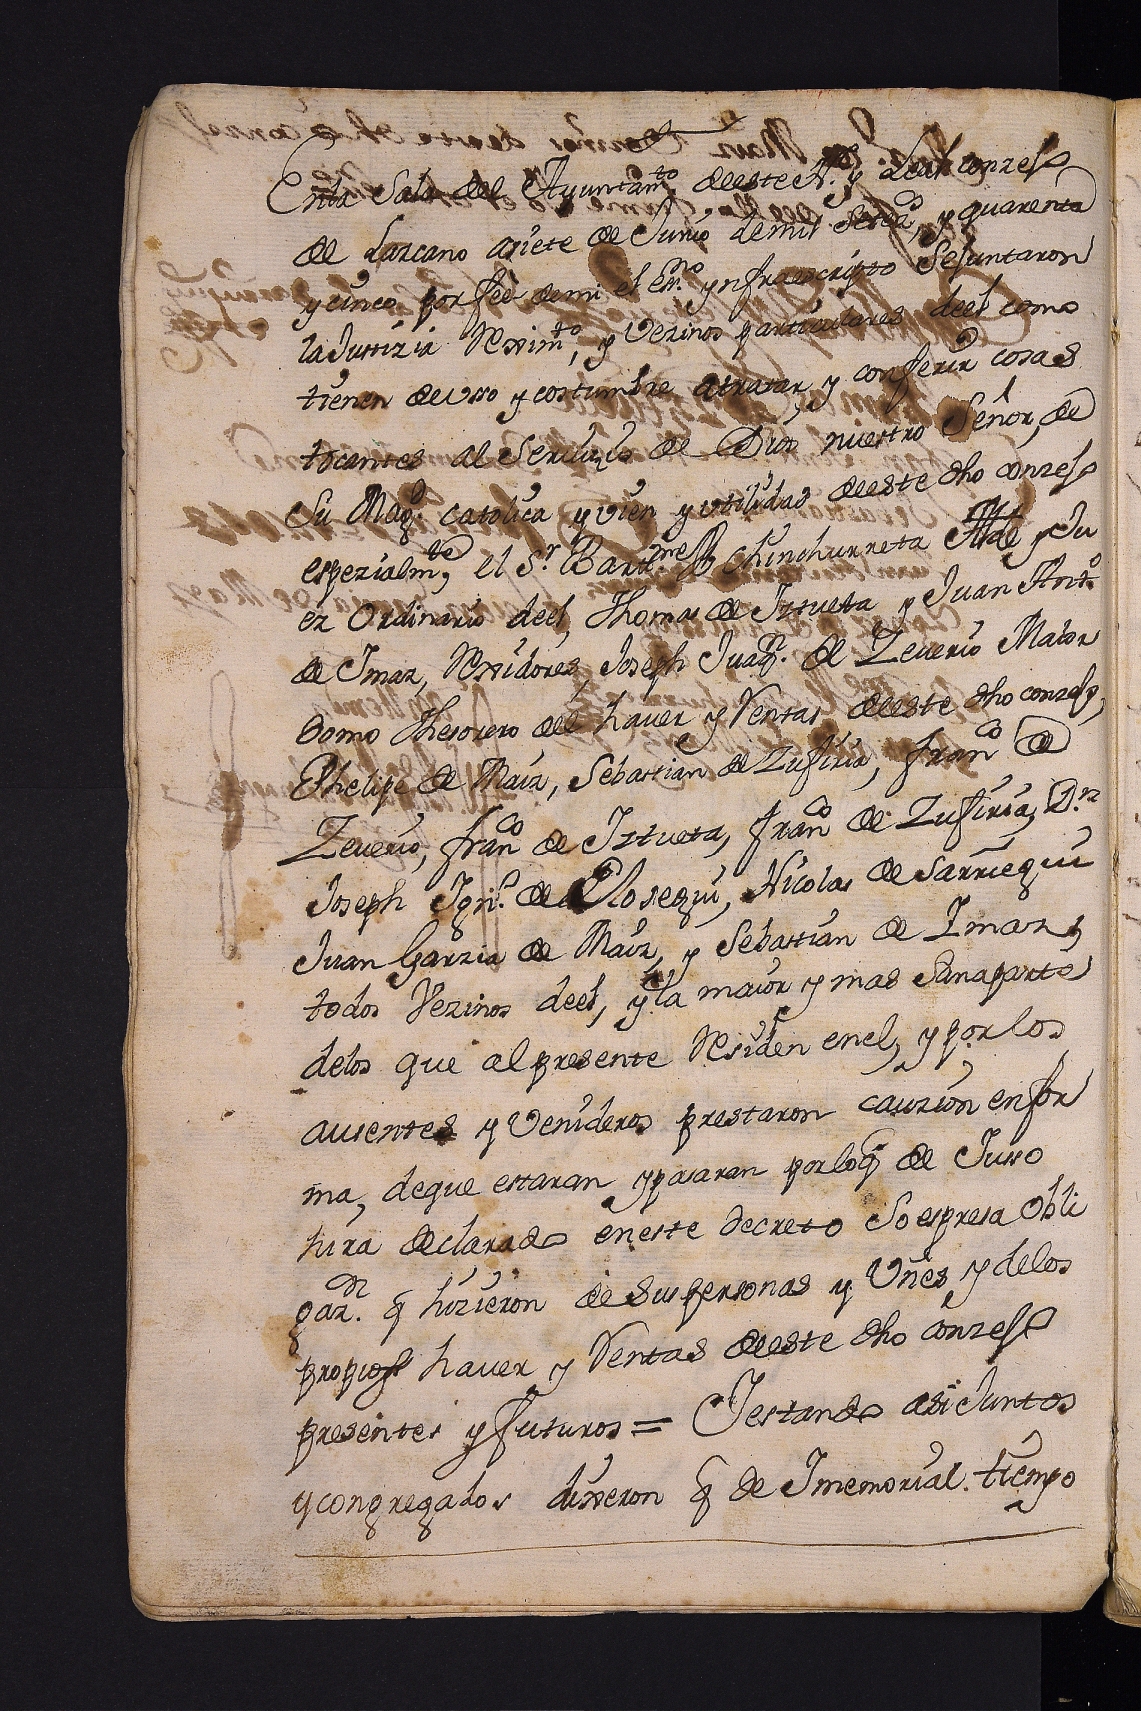 Enla Sala del Ayuntam.to deeste N. y Leal conzejo
de Lazcano asiete de Junio demil setecos, y quarenta
y cinco por fee demi el esno. ynfraescripto Sejuntaron
laJustizia Reximto, y Vezinos particulares deel como
tienen de uso y costumbre atratar y conferir cosas
tocantes al Servizio de Dios nuestro Señor, de
Su Magd. catolica y vien y utilidad deeste dho conzejo
espezialmte, el Sr. Bartme de Chinchurreta Allde y Ju
ez Ordinario deel, Thomas de Iztueta y Juan Anto
de Imaz, Rexidores, Joseph Juaqn. de Zeverio Maior
domo thesorero del haver y Rentas deeste dho conzejo,
Phelipe de Maiz, Sebastian de Zufiria, franco de
Zeverio, franco de Iztueta, franco de Zufiria, Dn
Joseph Igno. de Elosegui, Nicolas de Sarriegui
Juan Garzia de Maiz, y Sebastian de Imaz,
todos Vezinos deel, y la maior y mas Sanaparte
delos que alpresente Residen enel, y porlos
ausentes y Venideros prestaron cauzion enfor
ma, deque estaran ypasaran porloq de Iusso
hira declarado eneste decreto So espresa Obli
gazn. q hizieron de Suspersonas y Vnes y delos
propios haver y Rentas deeste dho conzejo
presentes y futuros = Iestando asi Juntos
y congregados dixeron q de Imemorial. tiempo